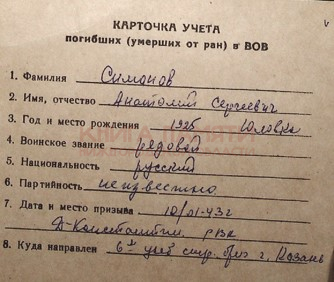 КАРТОЧКА УЧЕТА
погибших (умерших от ран) в ВОВ
1. Фамилия Симонов
2. Имя, отчество Анатолий Сергеевич
3. Год и место рождения 1925 Юловка
4. Воинское звание рядовой
5. Национальность русский
6. Партийность неизвестно
7. Дата и место призыва 10/01-43г
Д-Константин. РВК
8. Куда направлен 6 г. Казань